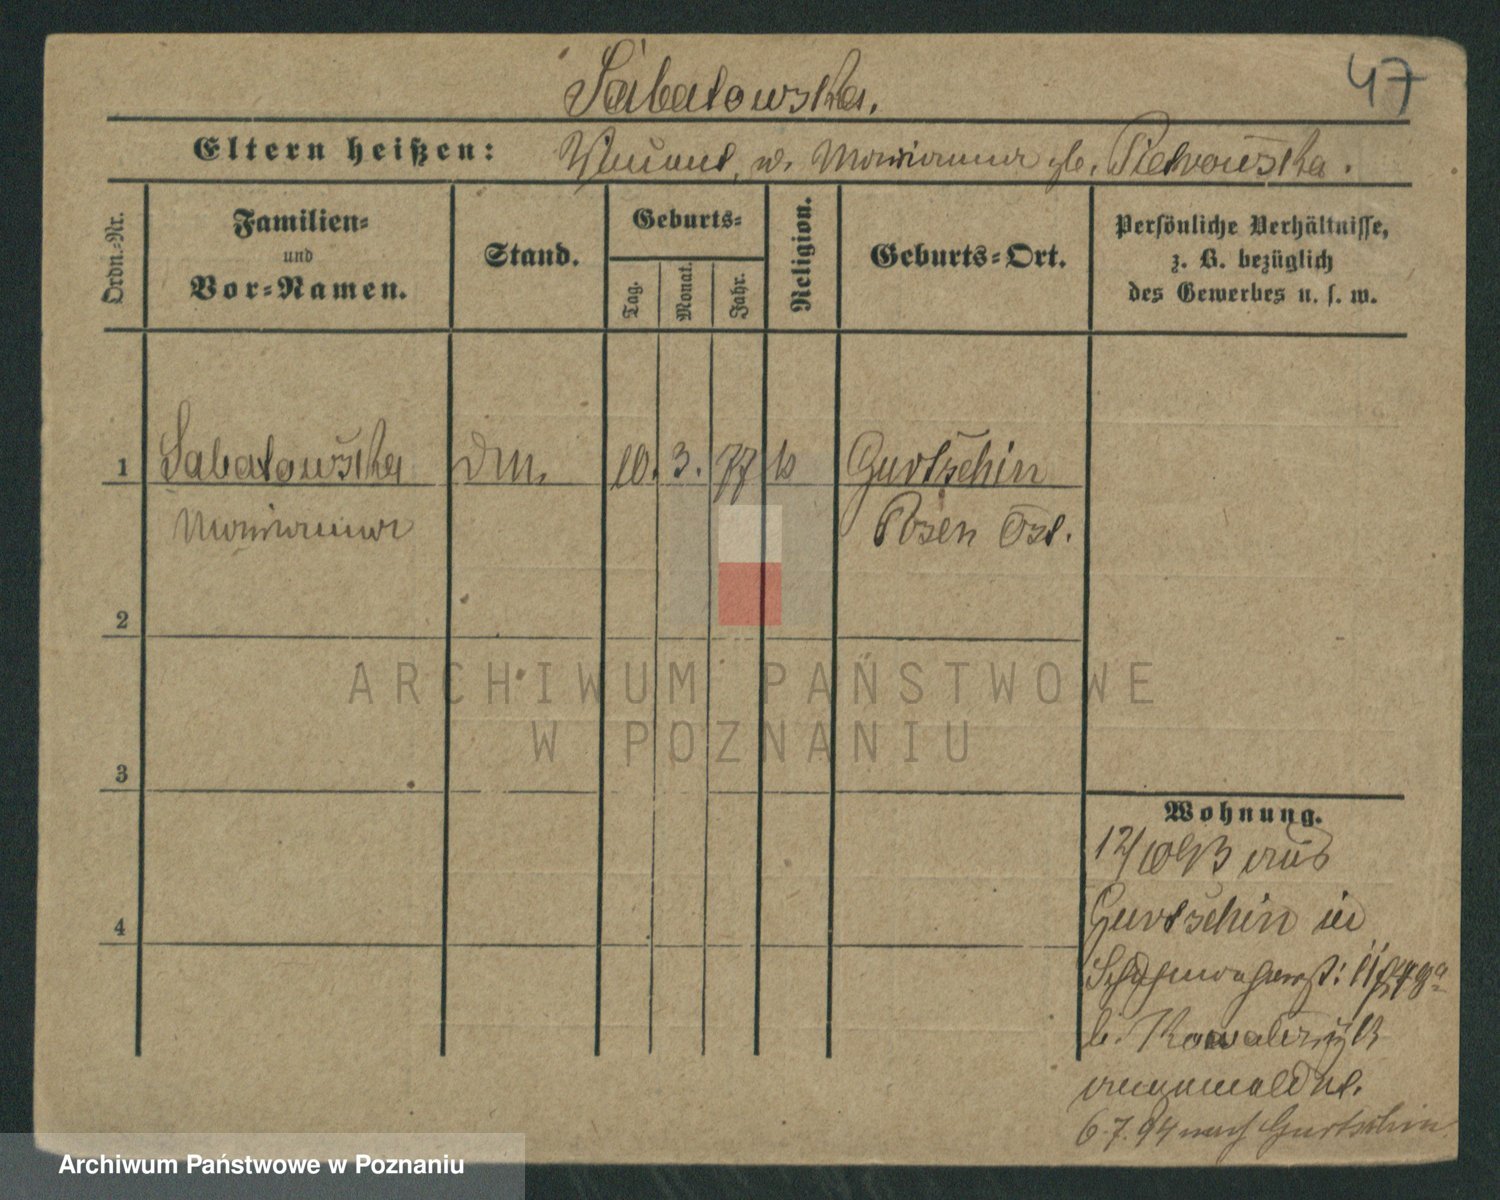 47
Sabatowska.
Eltern heißen: Vincent u. Marianna gb. Pietrowska.
Ordn.-Nr.
Familien-
und
Vor-Namen.
Stand.
Geburts-
Tag.
Monat.
Jahr.
Religion.
Geburts-Ort.
Persönliche Verhältnisse,
z. B. bezüglich
des Gewerbes u. s. w.
1 Sabatowska 10. 3. 77 k Gurtschin
Marianna Posen Ost.
2
3
4
Wohnung.
aus
Gurtschin in
b. Kowalczyk
angemeldet.
6.7.94 nach Gurtschin
ARCHIWUM PAŃSTWOWE
W POZNANIU
Archiwum Państwowe w Poznaniu